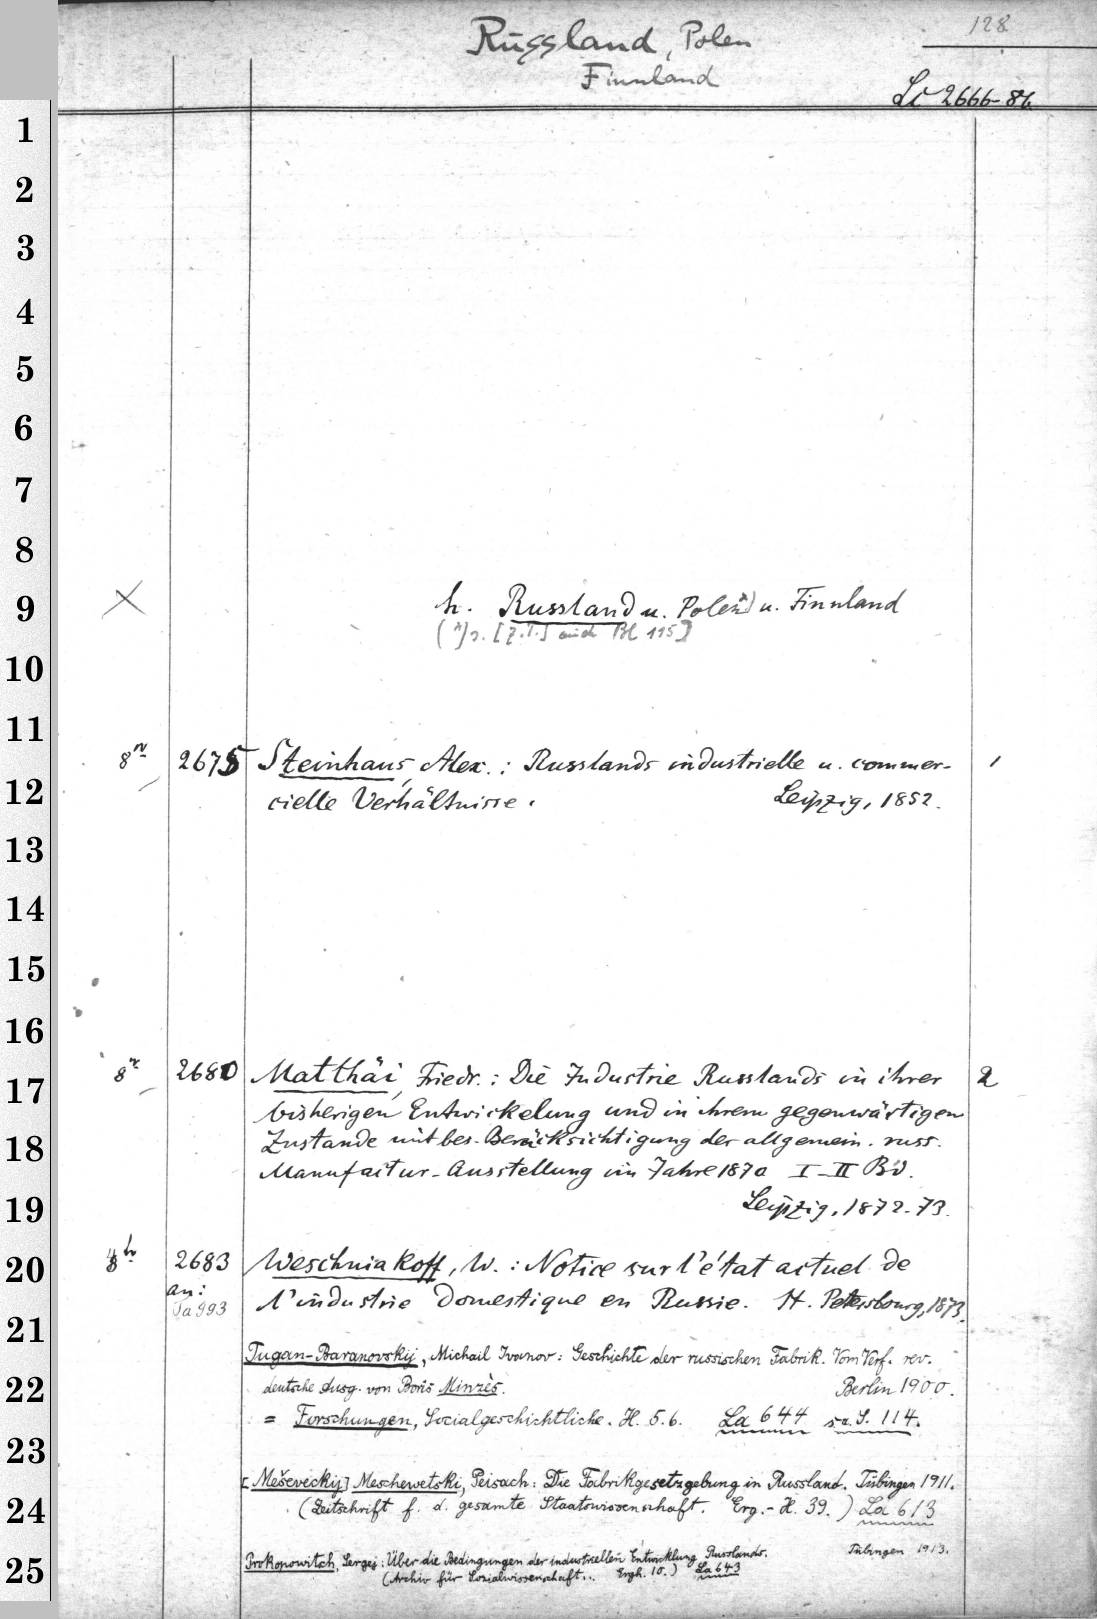 Russland, Polen 128
Finnland
Lc 2666-86.
1
2
3
4
5
6
7
8
h. Russland u. Polen *) u. Finnland
9
(*) s. [z.T.] auch Bl 115]
10
11
8° 2675 Steinhaus, Alex.: Russlands industrielle u. commer- 1
12
cielle Verhältnisse. Leipzig, 1852.
13
14
15
16
8° 2680 Matthäi, Friedr.: Die Industrie Russlands in ihrer 2
17
bisherigen Entwickelung und in ihrem gegenwärtigen
18
Zustande mit bes. Berücksichtigung der allgemein. russ.
Manufactur-Ausstellung im Jahre 1870 I-II Bd.
19
Leipzig, 1872-73.
20
2683 Weschniakoff, W.: Notice sur l'état actuel de
an:
Ta 993 l'industrie domestique en Russie. St. Petersbourg, 1873.
21
Tugan-Baranovskij, Michail Ivanov: Geschichte der russischen Fabrik. Vom Verf. rev.
22
deutsche Ausg. von Boris Minzès. Berlin 1900.
= Forschungen, Socialgeschichtliche. H. 5.6. La 644 s.a. S. 114.
23
[Meševeckij] Meschewetski, Peisach: Die Fabrikgesetzgebung in Russland. Tübingen 1911.
24
(Zeitschrift f. d. gesamte Staatswissenschaft. Erg.-H. 39.) La 613
Prokopowitch, Sergej: Über die Bedingungen der industriellen Entwicklung Russlands. Tübingen 1913.
25
(Archiv für Sozialwissenschaft.. Ergh. 10.) La 643